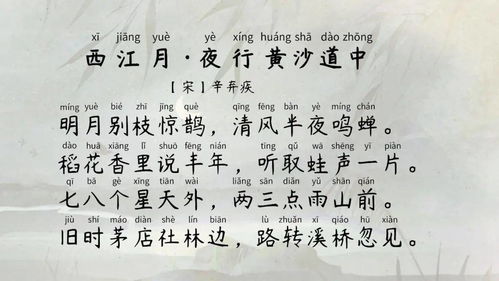 xī jiāng yuè yè xíng huáng shā dào zhōng
西江月·夜行黄沙道中
【宋】辛弃疾
míng yuè bié zhī jīng què qīng fēng bàn yè míng chán
明月别枝惊鹊，清风半夜鸣蝉。
dào huā xiāng lǐ shuō fēng nián tīng qǔ wā shēng yī piàn
稻花香里说丰年，听取蛙声一片。
qī bā gè xīng tiān wài liǎng sān diǎn yǔ shān qián
七八个星天外，两三点雨山前。
jiù shí máo diàn shè lín biān lù zhuǎn xī qiáo hū xiàn
旧时茅店社林边，路转溪桥忽见。